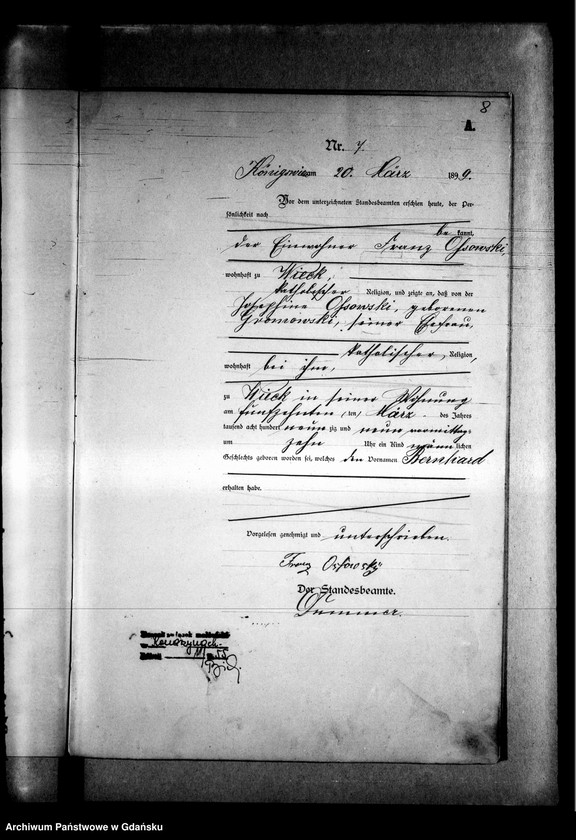 8
A.
Nr. 7.
am 20. März 1899.
Vor dem unterzeichneten Standesbeamten erschien heute, der Per-
sönlichkeit nach
be kannt,
der Einwohner Franz Ossowski,
wohnhaft zu Wieck,
katholischer Religion, und zeigte an, daß von der
Josephine Ossowski, geborenen
seiner Ehefrau,
katholischer Religion,
wohnhaft bei ihm,
zu Wieck in seiner Wohnung
am fünfzehnten ten März des Jahres
tausend acht hundert neun zig und neun vormittags
um zehn Uhr ein Kind männ lichen
Geschlechts geboren worden sei, welches den Vornamen Bernhard
erhalten habe.
Vorgelesen, genehmigt und unterschrieben.
Franz Ossowsky
Der Standesbeamte.
Archiwum Państwowe w Gdańsku